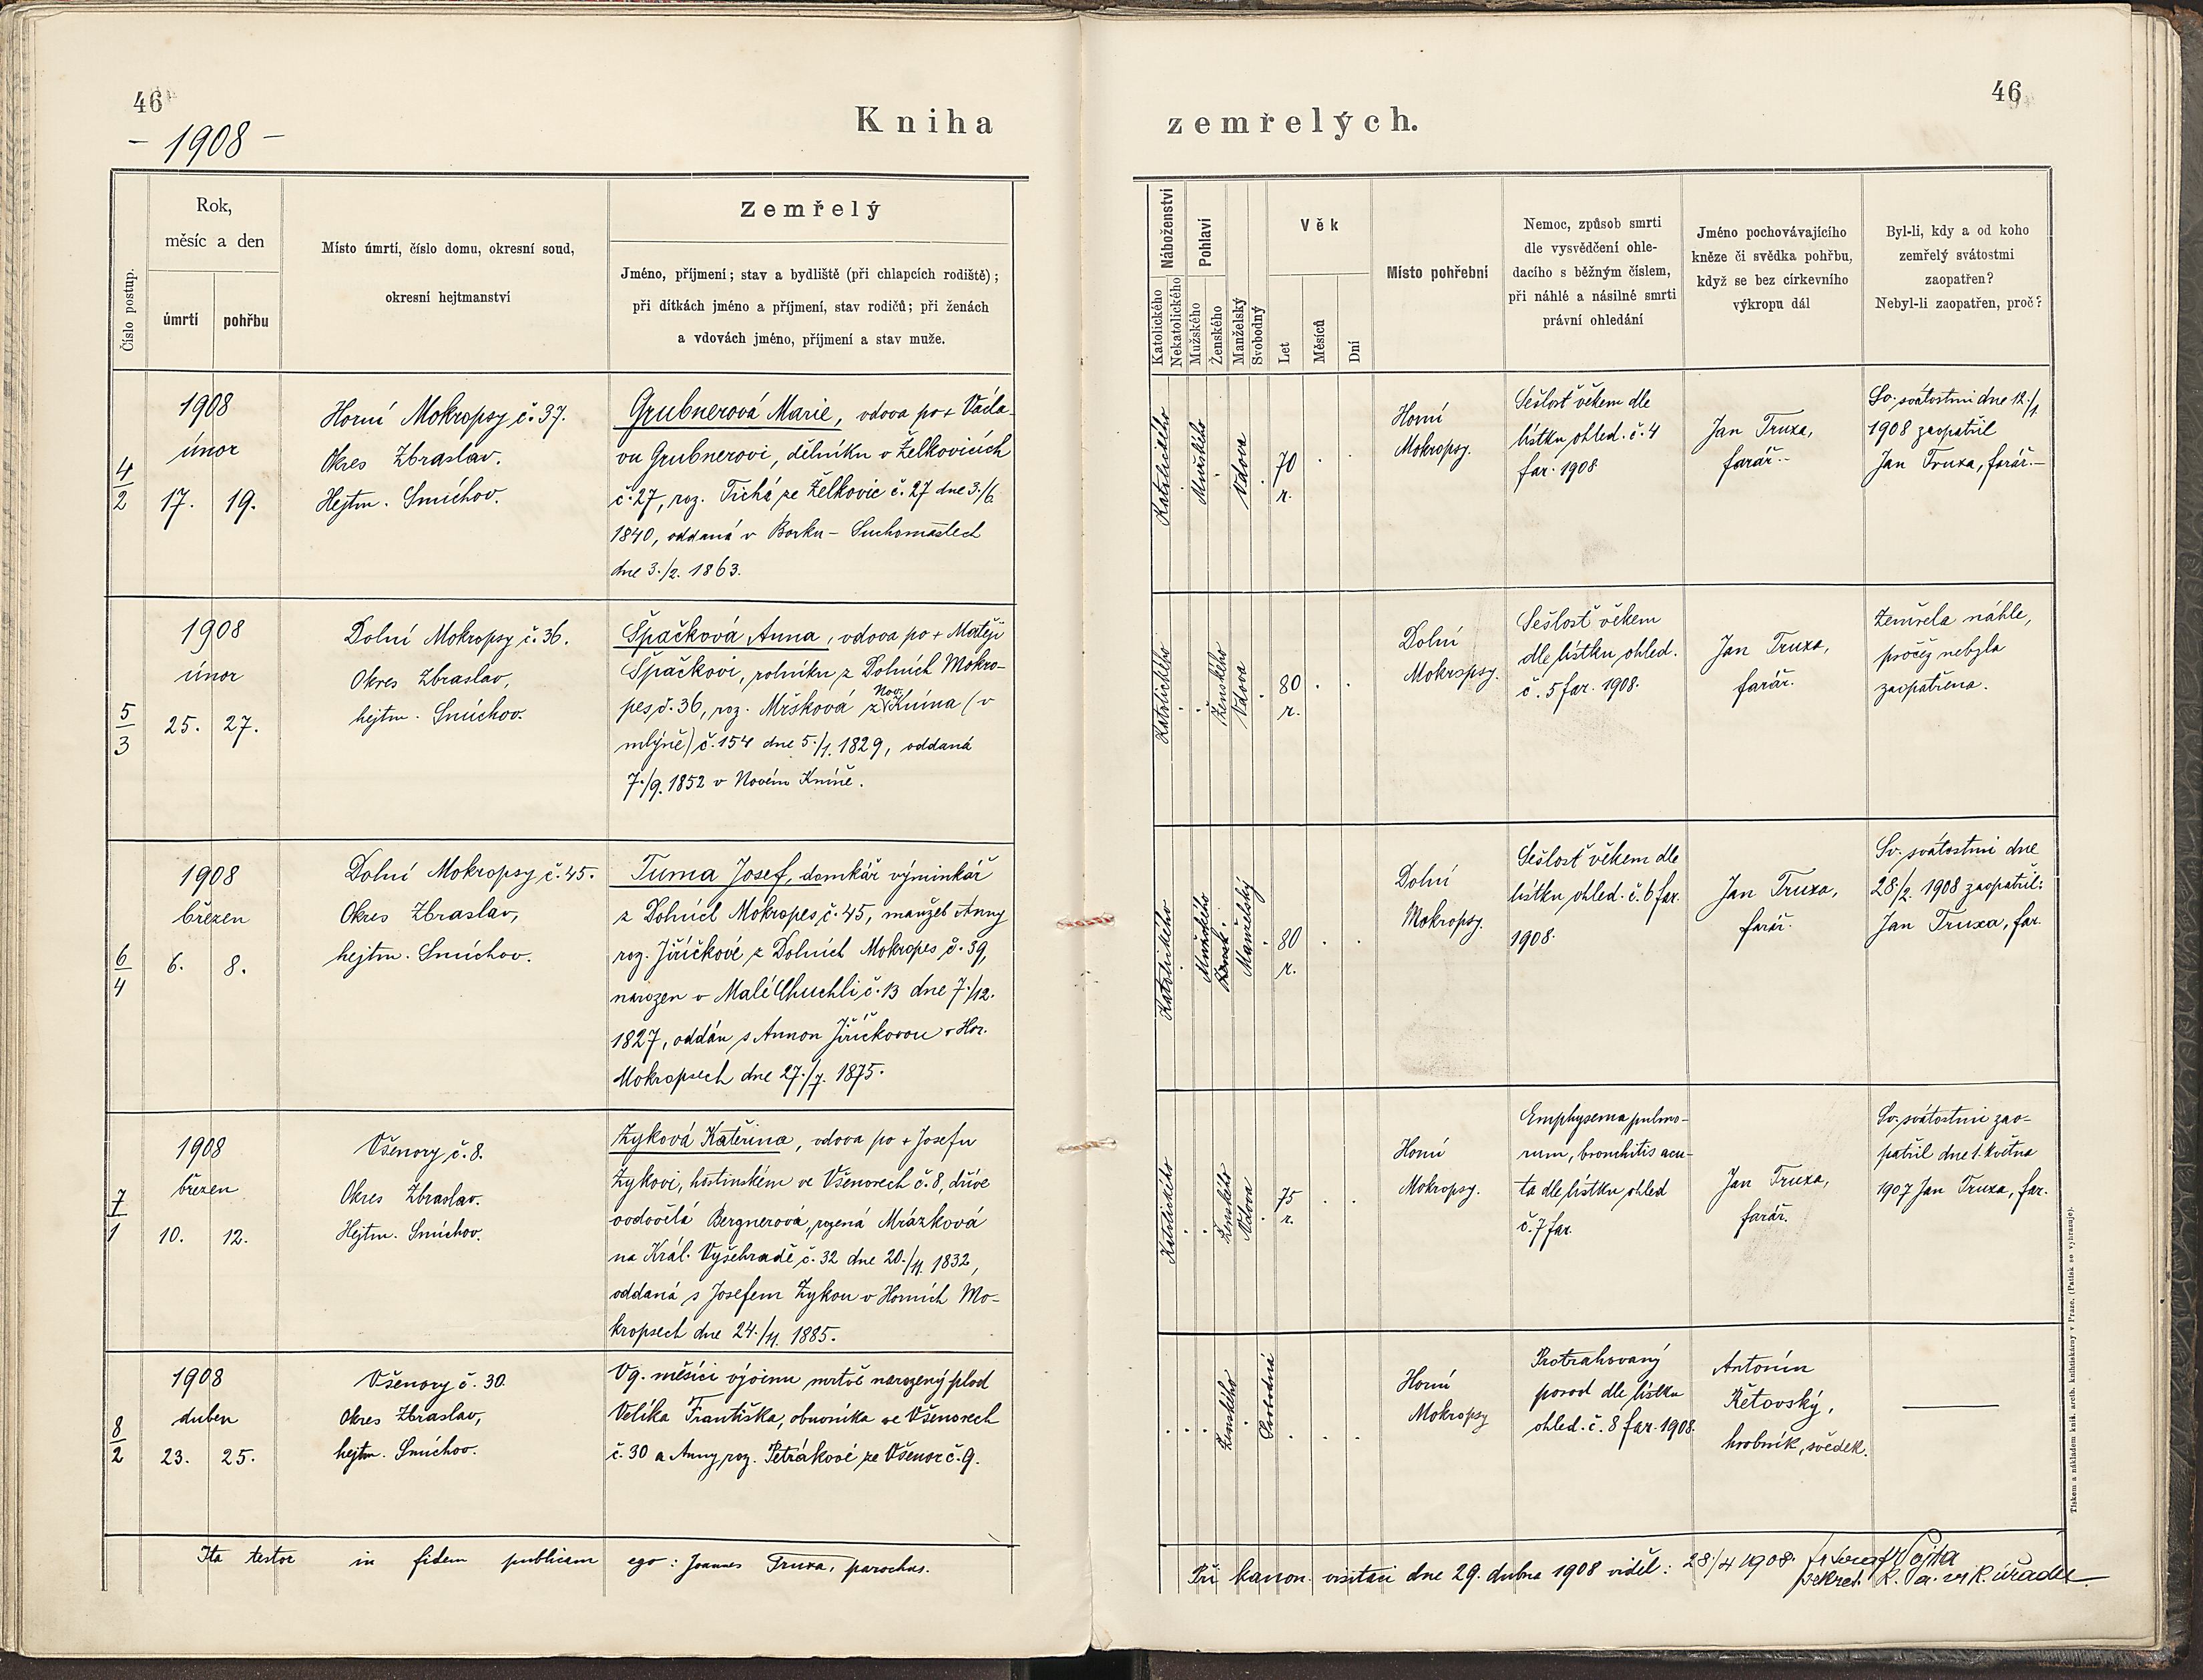 46
46
- 1908 -
Kniha zemřelých.
Číslo postup.
Rok,
měsíc a den
úmrtí
pohřbu
Místo úmrtí, číslo domu, okresní soud,
okresní hejtmanství
Zemřelý
Jméno, příjmení; stav a bydliště (při chlapcích rodiště);
při dítkách jméno a příjmení, stav rodičů; při ženách
a vdovách jméno, příjmení a stav muže.
Náboženství
Katolického
Nekatolického
Pohlaví
Mužského
Ženského
Manželský
Svobodný
Věk
Let
Měsíců
Dní
Místo pohřební
Nemoc, způsob smrti
dle vysvědčení ohle-
dacího s běžným číslem,
při náhlé a násilné smrti
právní ohledání
Jméno pochovávajícího
kněze či svědka pohřbu,
když se bez církevního
výkropu dál
Byl-li, kdy a od koho
zemřelý svátostmi
zaopatřen?
Nebyl-li zaopatřen, proč?
4/2
1908
únor
17. 19.
Horní Mokropsy č. 37.
Okres Zbraslav.
Hejtm. Smíchov.
Grubnerová Marie, vdova po + Václa-
vu Grubnerovi, dělníku v Želkovicích
č. 27, roz. Tichá ze Želkovic č. 27 dne 3./6.
1840, oddaná v Borku - Suchomastech
dne 3./2. 1863.
Katolického
Mužského
Vdova
70
r.
Horní
Mokropsy.
Sešlosť věkem dle
lístku ohled. č. 4
far. 1908
Jan Truxa,
farář.
Sv. svátostmi dne 12./1.
1908 zaopatřil
Jan Truxa, farář.-
5/3
1908
únor
25. 27.
Dolní Mokropsy č. 36.
Okres Zbraslav,
hejtm. Smíchov.
Špačková Anna, vdova po + Matěji
Špačkovi, rolníku z Dolních Mokro-
pes, č. 36, roz. Mršková z Nov. Knína (v
mlýně) č. 154 dne 5./1. 1829, oddaná
7./9. 1852 v Novém Kníně.
Katolického
Ženského
Vdova
80
r.
Dolní
Mokropsy.
Sešlosť věkem
dle lístku ohled.
č. 5 far. 1908.
Jan Truxa,
farář.
Zemřela náhle,
pročež nebyla
zaopatřena.
6/4
1908
březen
6. 8.
Dolní Mokropsy č. 45.
Okres Zbraslav,
hejtm. Smíchov.
Tuma Josef, domkář výminkář
z Dolních Mokropes č. 45, manžel Anny
roz. Jiříčkové z Dolních Mokropes č. 39,
narozen v Malé Chuchli č. 13 dne 7./12.
1827, oddán s Annou Jiříčkovou v Hor.
Mokropsech dne 27./7. 1875.
Katolického
Mužského
Žensk.
Manželský
80
r.
Dolní
Mokropsy.
Sešlosť věkem dle
lístku ohled. č. 6 far.
1908.
Jan Truxa,
farář.
Sv. svátostmi dne
28./2. 1908 zaopatřil:
Jan Truxa, far.
7/1
1908
březen
10. 12.
Všenory č. 8.
Okres Zbraslav.
Hejtm. Smíchov.
Zyková Kateřina, vdova po + Josefu
Zykovi, hostinském ve Všenorech č. 8, dříve
ovdovělá Bergnerová, rozená Mrázková
na Král. Vyšehradě č. 32 dne 20./11. 1832,
oddaná s Josefem Zykou v Horních Mo-
kropsech dne 24./11. 1885.
Katolického
Ženského
Vdova
75
r.
Horní
Mokropsy.
Emphysema pulmo-
rum, bronchitis acu-
ta dle lístku ohled
č. 7 far.
Jan Truxa,
farář.
Sv. svátostmi zao-
patřil dne 1. května
1907 Jan Truxa, far.
8/2
1908
duben
23. 25.
Všenory č. 30.
Okres Zbraslav,
hejtm. Smíchov.
V 9. měsíci vývinu mrtvě narozený plod
Velíka Františka, obuvníka ve Všenorech
č. 30 a Anny roz. Petrákové ze Všenor č. 9.
Ženského
Svobodná
Horní
Mokropsy
Protrahovaný
porod dle lístku
ohled. č. 8 far. 1908.
Antonín
Řetovský,
hrobník, svědek.
Ita testor in fidem publicam ego: Joannes Truxa, parochus.
Při kanon. visitaci dne 29. dubna 1908 viděl: 28/4 1908.
Vojta
Tiskem a nákladem kníž. arcib. knihtiskárny v Praze. (Patisk se vyhrazuje).